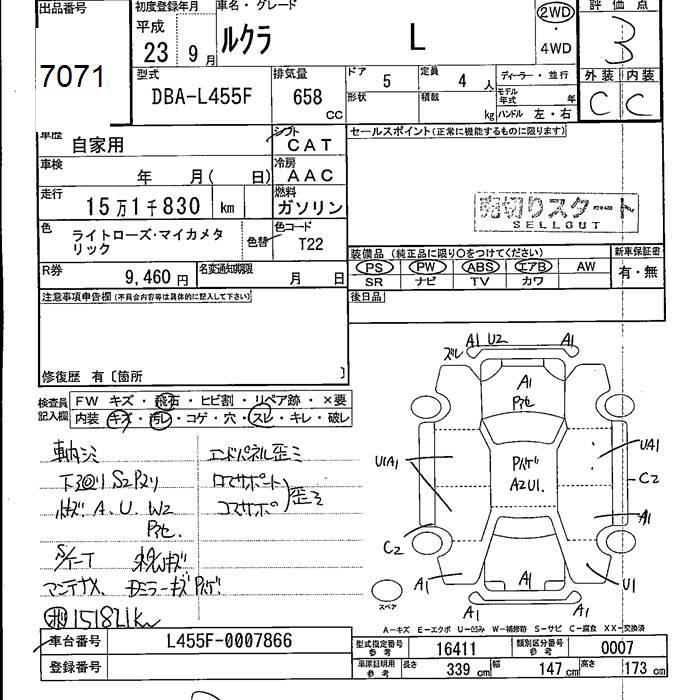 出品番号
7071
初度登録年月
平成
23 9月
車名・グレード
ルクラ L
2WD
・
4WD
評価点
3
外装 内装
C C
型式
DBA-L455F
排気量
658 CC
ドア 5
定員 4 人
形状
積載 kg
ディーラー・並行
モデル年式 年
ハンドル 左・右
車歴
自家用
シフト
CAT
車検
年 月( 日)
冷房
AAC
走行
15万1千830 km
燃料
ガソリン
色
ライトローズ・マイカメタリック
色替
色コード
T22
R券
9,460円
名変通知期限
月 日
セールスポイント(正常に機能するものに限ります)
売切りスタート
SELLOUT
装備品(純正品に限り○をつけてください)
新車保証書
PS PW ABS エアB AW
SR ナビ TV カワ
有・無
後日品
注意事項申告欄(不具合内容等は具体的に記入して下さい)
修復歴 有〔箇所 〕
検査員記入欄
FW キズ・飛石・ヒビ割・リペア跡・×要
内装 キズ・汚レ・コゲ・穴・スレ・キレ・破レ
下回りS2 P2リ
A. U. W2
エンドパネル歪ミ
ロアサポート
コアサポ
歪ミ
151821k
ズレ A1 U2 A1
A1
U1A1
A2U1.
UA1
C2
A1
C2
A1
A1
U1
A1
A1
スペア
A－キズ E－エクボ U－凹み W－補修跡 S－サビ C－腐食 XX－交換済
車台番号
L455F-0007866
登録番号
型式指定番号 参考
16411
類別区分番号 参考
0007
車庫証明用 参考
長さ 339 cm
幅 147 cm
高さ 173 cm